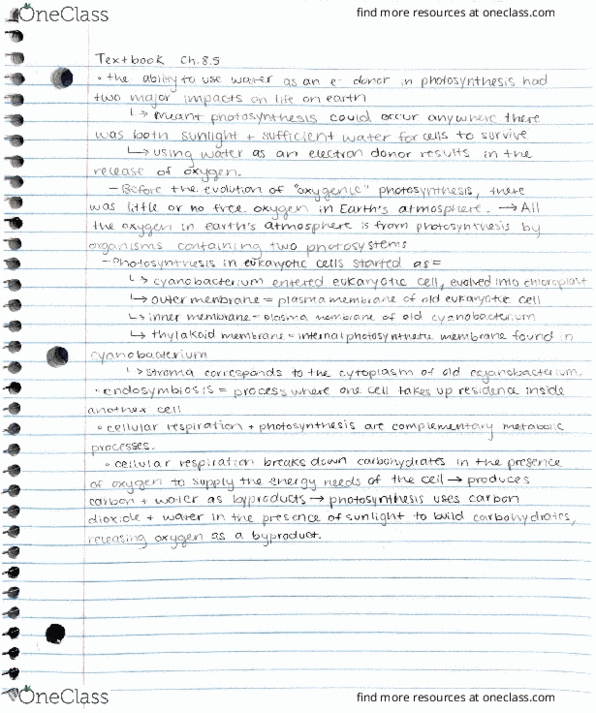 OneClass
find more resources at oneclass.com
Textbook Ch. 8.5
• the ability to use water as an e- donor in photosynthesis had
two major impacts on life on earth
↳ meant photosynthesis could occur anywhere there
was both sunlight + sufficient water for cells to survive
↳ using water as an electron donor results in the
release of oxygen.
- Before the evolution of "oxygenic" photosynthesis, there
was little or no free oxygen in Earth's atmosphere. → All
the oxygen in earth's atmosphere is from photosynthesis by
organisms containing two photosystems
- Photosynthesis in eukaryotic cells started as =
↳ cyanobacterium entered eukaryotic cell, evolved into chloroplast
↳ outer membrane = plasma membrane of old eukaryotic cell
↳ inner membrane = plasma membrane of old cyanobacterium
↳ thylakoid membrane = internal photosynthetic membrane found in
cyanobacterium
↳ stroma corresponds to the cytoplasm of old cyanobacterium.
• endosymbiosis = process where one cell takes up residence inside
another cell
• cellular respiration + photosynthesis are complementary metabolic
processes.
• cellular respiration breaks down carbohydrates in the presence
of oxygen to supply the energy needs of the cell → produces
carbon + water as byproducts → photosynthesis uses carbon
dioxide + water in the presence of sunlight to build carbohydrates,
releasing oxygen as a byproduct.
OneClass
find more resources at oneclass.com